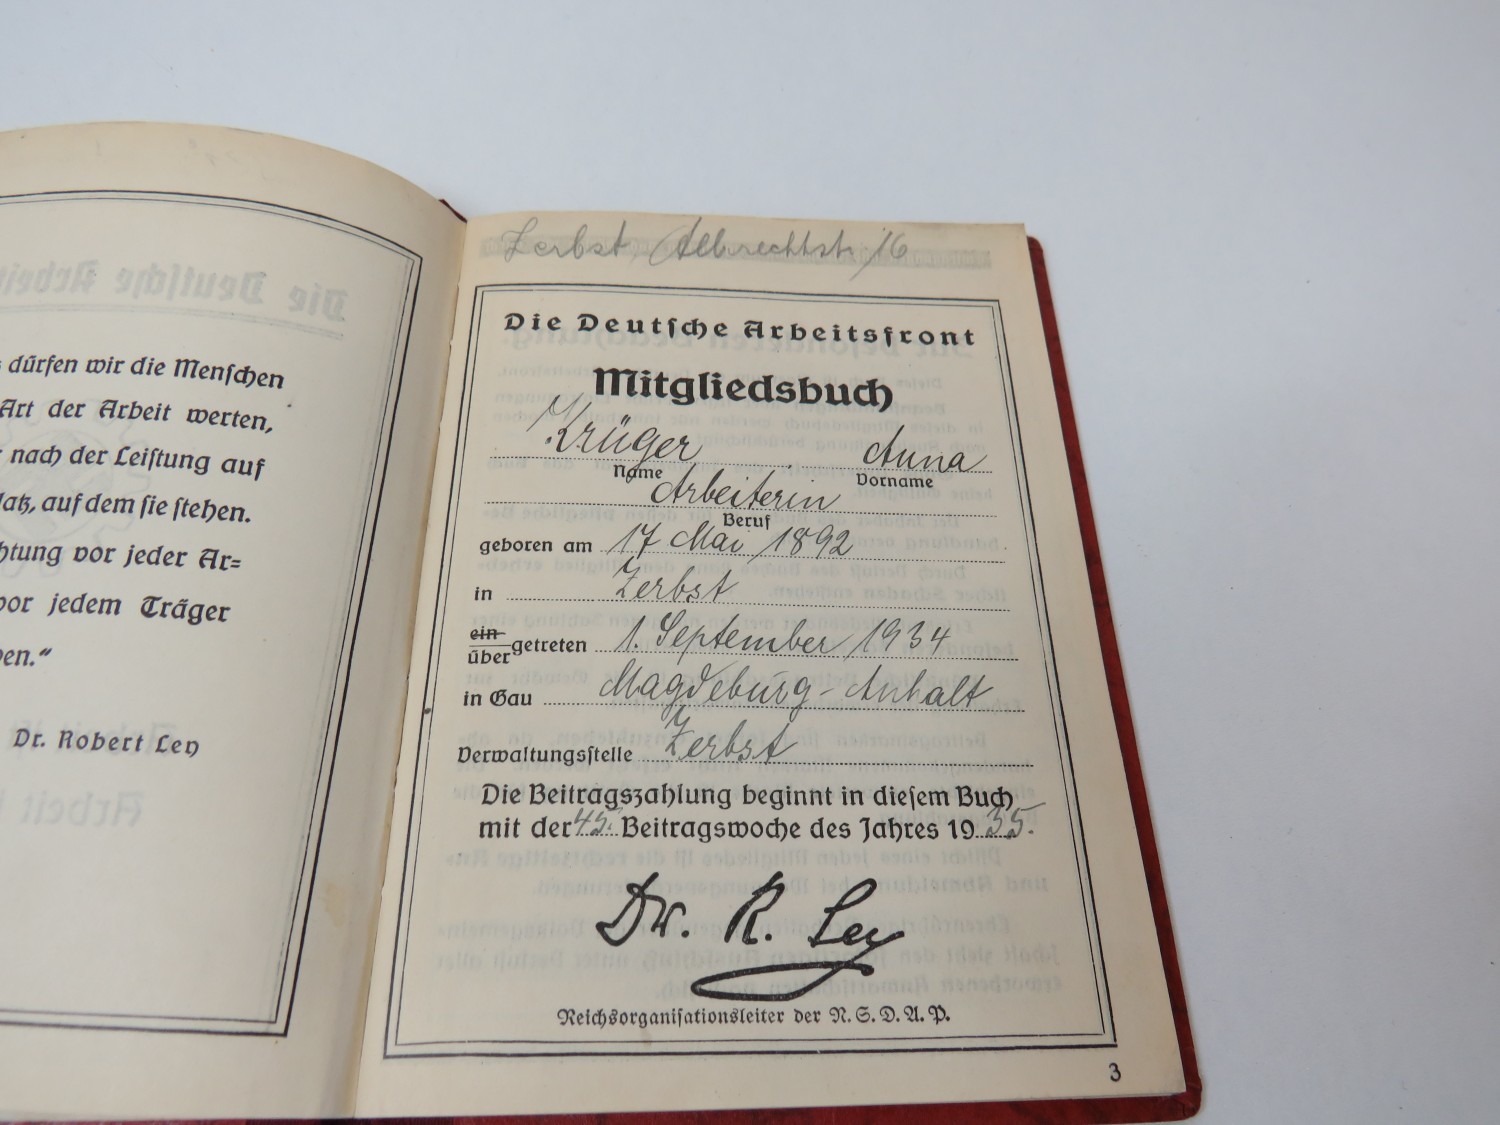 dürfen wir die Menschen
Art der Arbeit werten,
nach der Leistung auf
auf dem sie stehen.
vor jeder Ar=
vor jedem Träger
Dr. Robert Ley
Zerbst, Albrechtstr. 16
Die Deutsche Arbeitsfront
Mitgliedsbuch
Krüger Anna
Name Vorname
Arbeiterin
Beruf
geboren am 17 Mai 1892
in Zerbst
ein
über getreten 1. September 1934
in Gau Magdeburg-Anhalt
Verwaltungsstelle Zerbst
Die Beitragszahlung beginnt in diesem Buch
mit der 45. Beitragswoche des Jahres 1935.
Dr. R. Ley
Reichsorganisationsleiter der N.S.D.A.P.
3